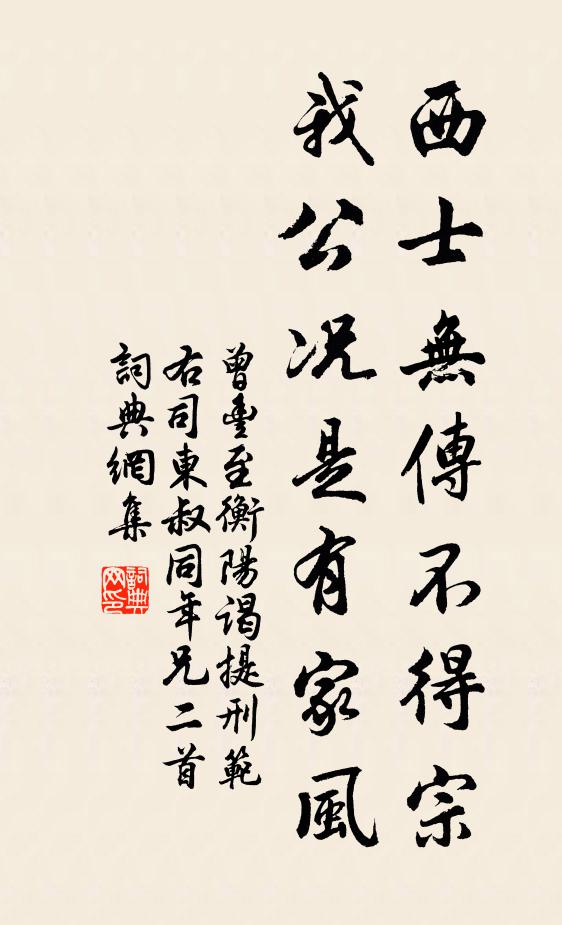 西士無傳不得宗
我公况是有家風
曾豊至衡陽謁提刑範
右司東叔同年兄二首
詞典網集
詞典網印